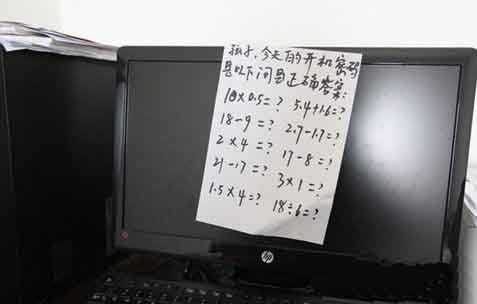 孩子,今天的开机密码
是以下问题正确答案:
10×0.5=? 5.4+1.6=?
18-9=? 2.7-1.7=?
2×4=? 17-8=?
21-17=? 3×1=?
1.5×4=? 18÷6=?
hp